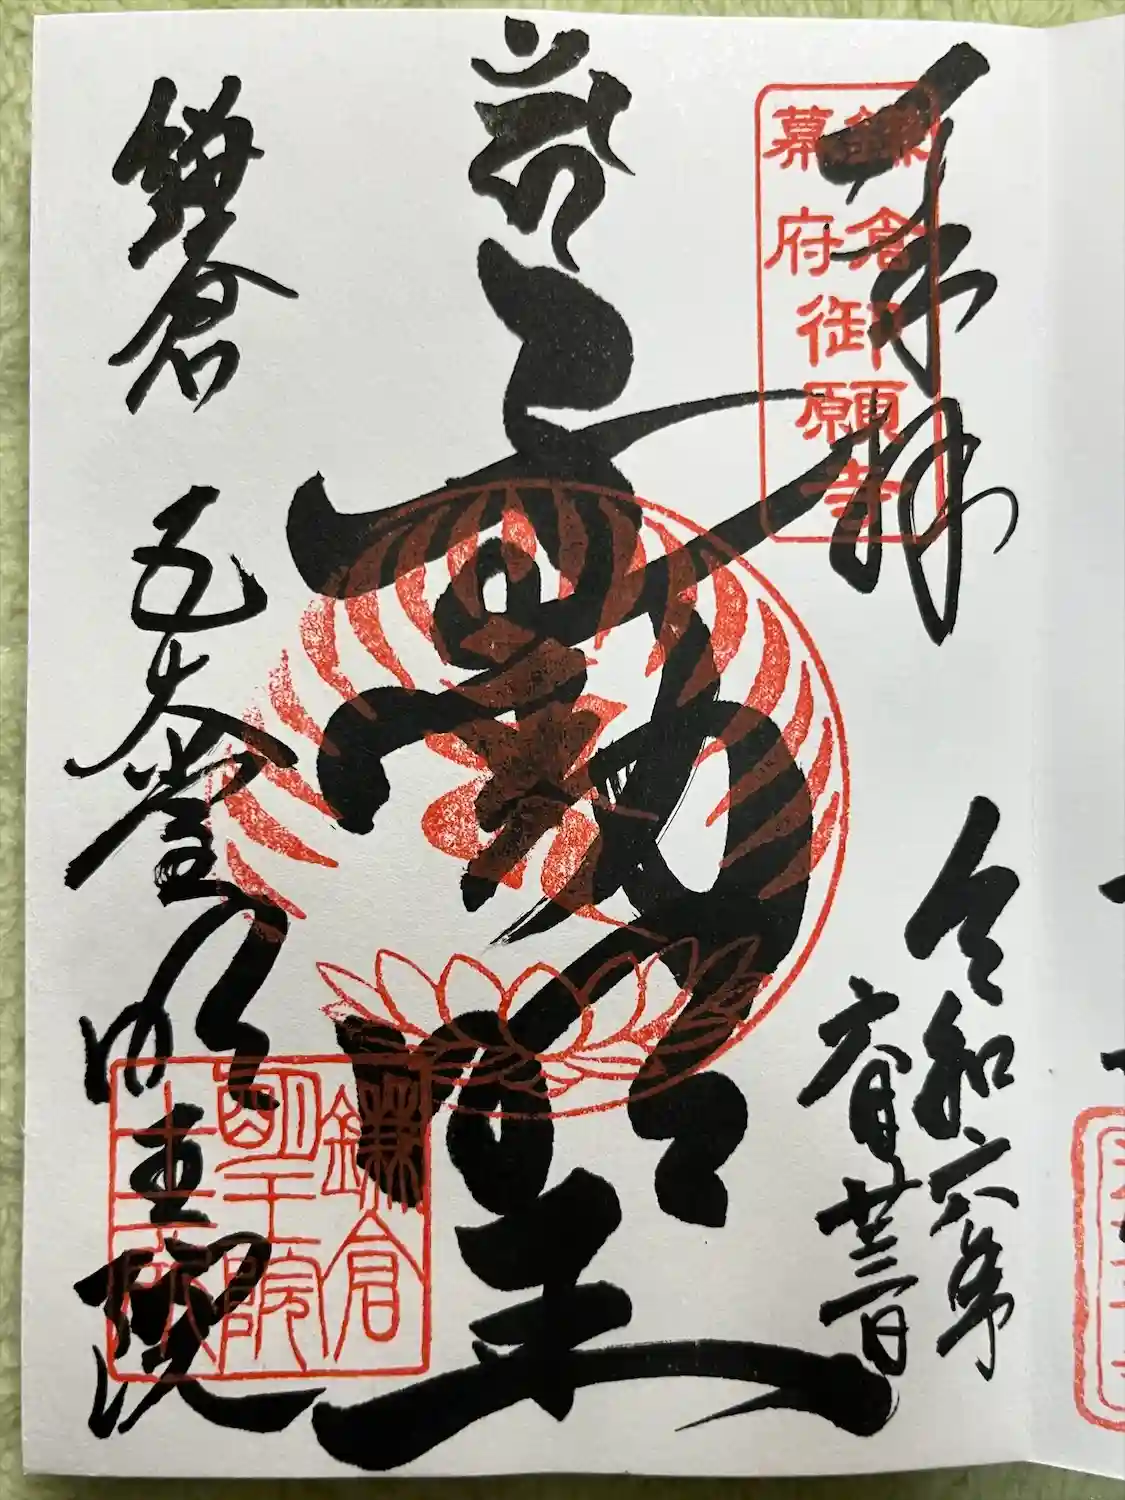 奉拝
鎌倉
幕府
御願寺
令和六年
六月廿三日
不動明王
鎌倉 五大堂 明王院
鎌倉
明王院